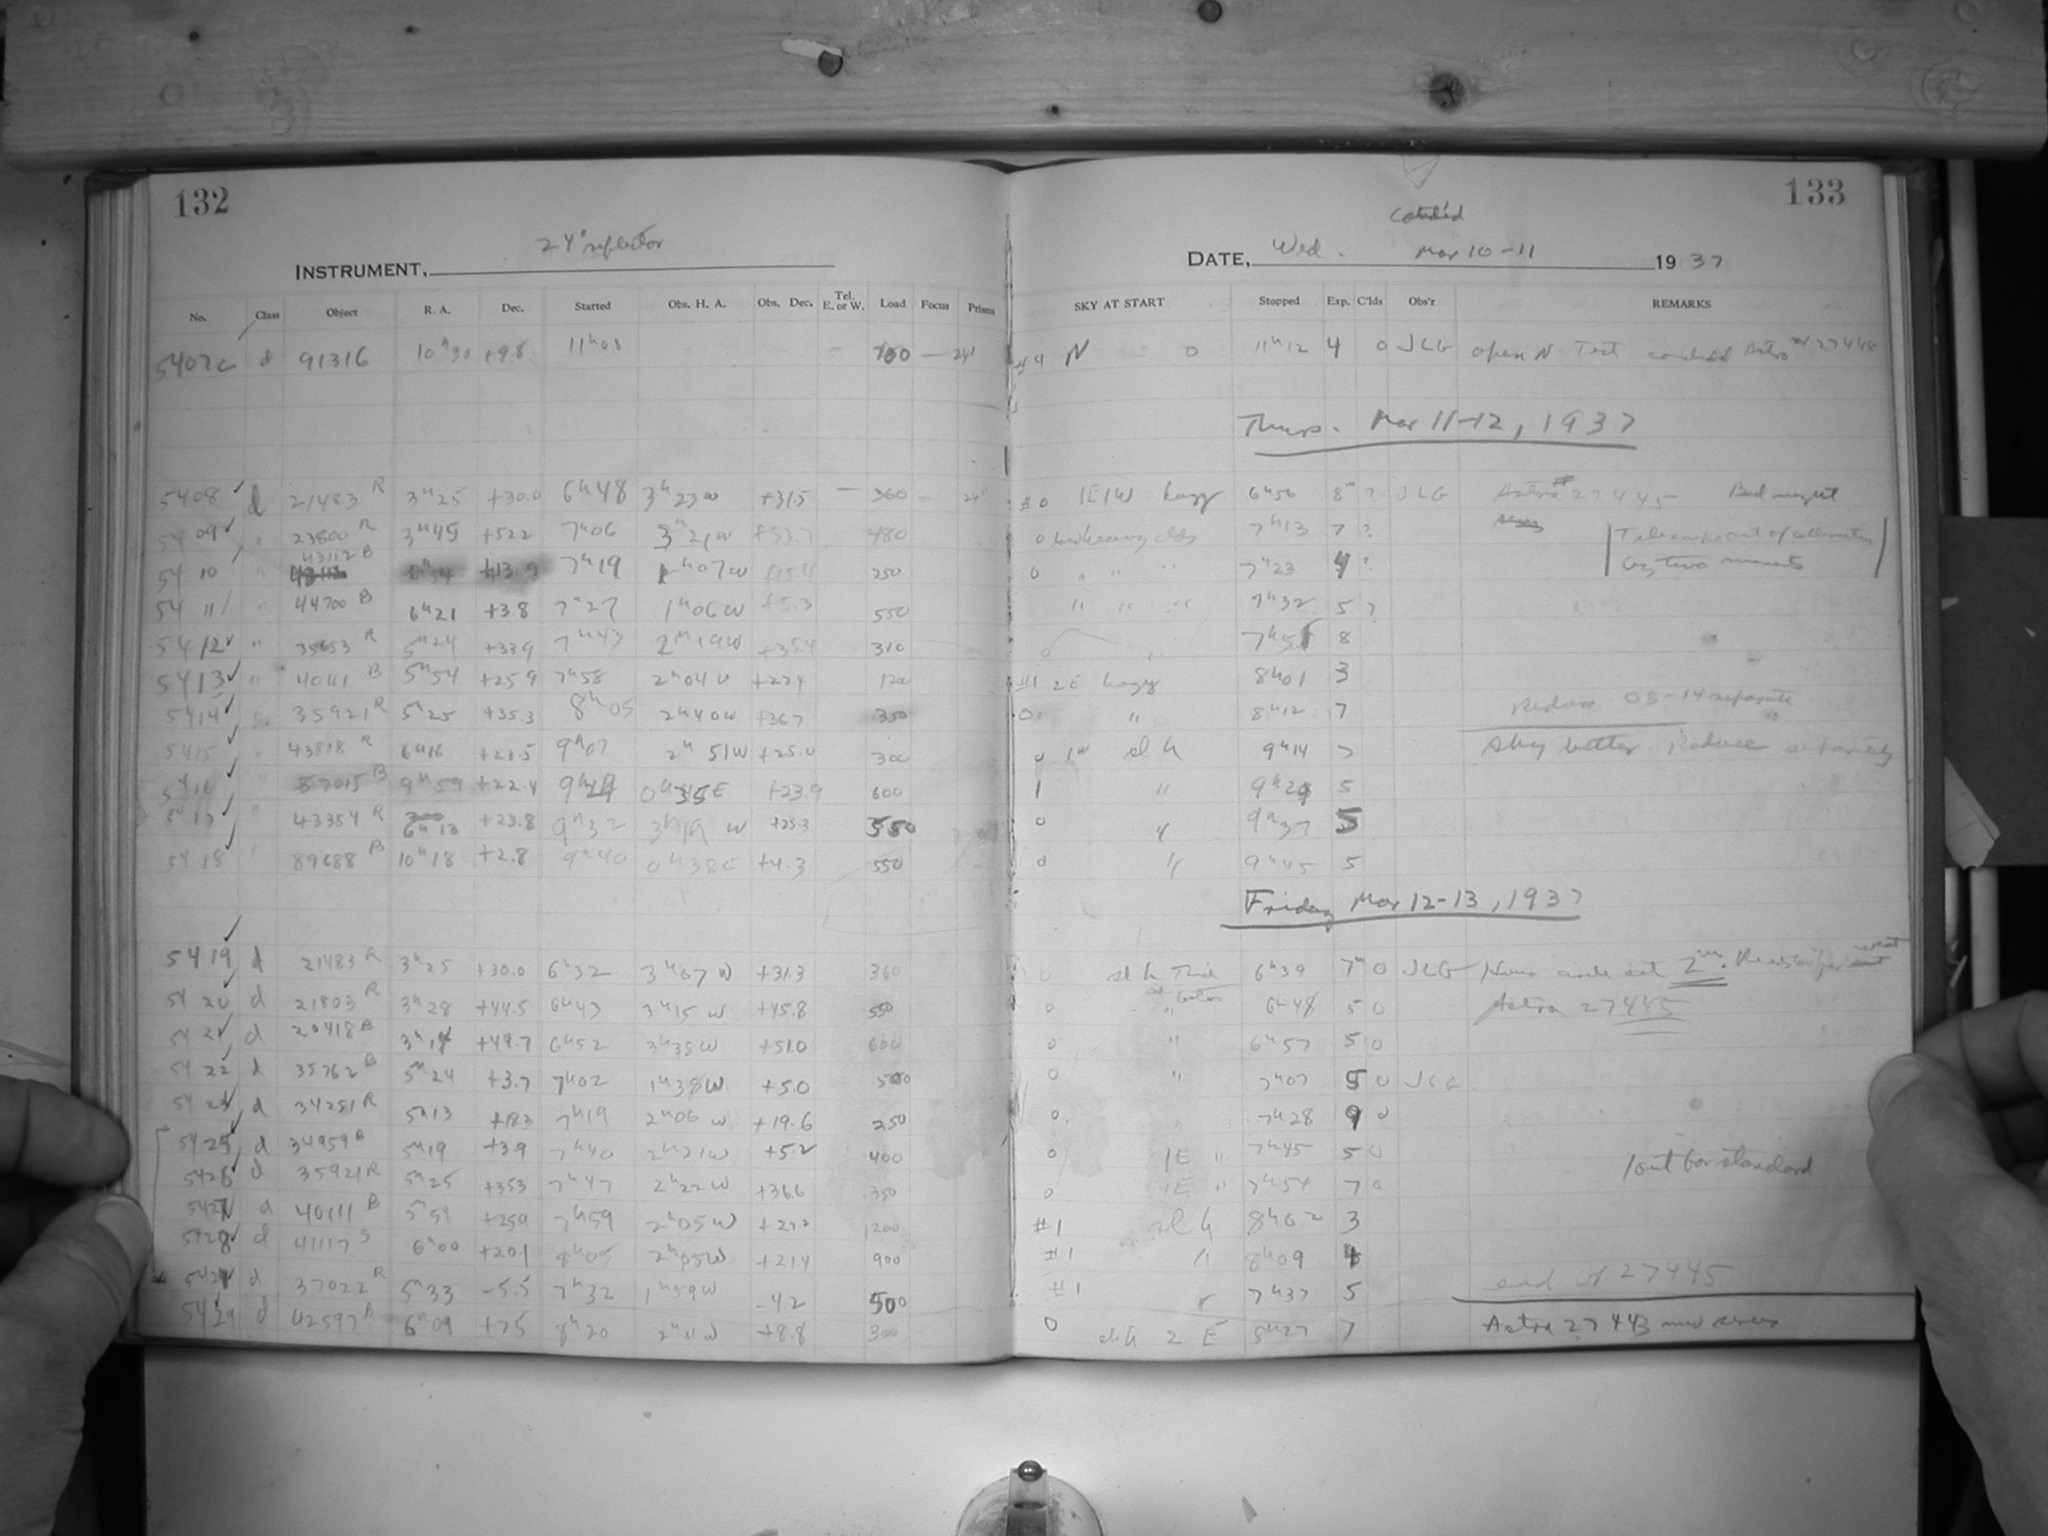 132
24" reflector
INSTRUMENT,
No. Class Object R. A. Dec. Started Obs. H. A. Obs. Dec. Tel. E. or W. Load Focus Prisms
5407c d 91316 10h30 +9.8 11h08 — 24"
5408 d 21483 R 3h25 +30.0 6h48 3h23w +31.5 — 360 – 24"
5409 " 23800 R 3h45 +52.2 7h06 3h21w +53.7 480
43112 B
5410 " 7h19 1h07w +15.4 250
5411 " 44700 B 6h21 +3.8 7h27 1h06w +5.3 550
5412 " 35653 R 5h24 +33.9 7h43 2h19w +35.4 310
5413 " 40111 B 5h54 +25.9 7h58 2h04w +27.4 120
5414 " 35921 R 5h25 +35.3 8h05 2h40w +36.7 350
5415 " 43818 R 6h16 9h07 2h51w +25.0 300
5416 " 87015 B 9h59 +22.4 0h35E +23.9 600
5417 " 43384 R 6h13 +23.8 9h32 3h19 w +25.3 550
5418 " 89688 B 10h18 +2.8 9h40 0h38E +4.3 550
5419 d 21483 R 3h25 +30.0 6h32 3h07w +31.3 360
5420 d 21803 R 3h28 +44.5 6h43 3h15w +45.8
5421 d 20418 B +49.7 6h52 3h38w +51.0 600
5422 d 35762 B 5h24 +3.7 7h02 1h38w +5.0 500
5423 d 34251 R 5h13 +18.3 7h19 2h06w +19.6 250
5425 d 34959 B 5h19 +3.9 7h40 2h21w +5.2 400
5426 d 35921 R 5h25 +35.3 7h47 2h22w +36.6 350
5427 d 40111 B 5h54 +25.9 7h59 2h05w +27.2 1200
5428 d 41117 S 6h00 +20.1 8h05 2h05w +21.4 900
d 37022 R 5h33 -5.5 7h32 1h59w -4.2 500
5429 d 42597 B 6h09 +7.5 8h20 2h11w +8.8 300
133
DATE, Wed. Mar 10-11 1937
SKY AT START Stopped Exp. C'lds Obs'r REMARKS
#4 N 0 11h12 4 0 JLG open N Test Astro
Thurs. Mar 11-12, 1937
#0 1E1W hazy 6h56 8m ? JLG Astra # 27445 Bad night
0 heavy clds 7h13 7 ? Telescope out of
0 " " " 7h23 4 ? two
" " " 7h32 5 ?
0 " 7h51 8
#1 2E hazy 8h01 3
0 " 8h12 7 Reduce 08-14 separate
0 1w sl h 9h14 7 Sky better. Reduce separately
1 " 9h29 5
0 " 9h37 5
0 " 9h45 5
Friday Mar 12-13, 1937
0 sl h Thick 6h39 7m 0 JLG Hour circle set 2m.
0 " 6h48 5 0 Astra 27445
0 " 6h57 5 0
0 " 7h07 5 0 JLG
0 7h28 9 0
0 1E " 7h45 5 0 1 out for standard
0 1E " 7h54 7 0
#1 sl h 8h02 3
#1 " 8h09 4
#1 " 7h37 5 end of 27445
0 sl h 2 E 8h27 7 Astra 27443 new series